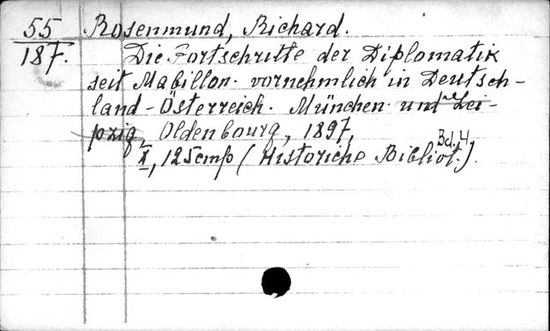 55 Rosenmund, Richard.
187. Die Fortschritte der Diplomatik
seit Mabillon vornehmlich in Deutsch-
land-Österreich. München und Lei-
pzig, Oldenbourg, 1897,
X, 125 стр (Historiche Bibliot. Bd. 4.).